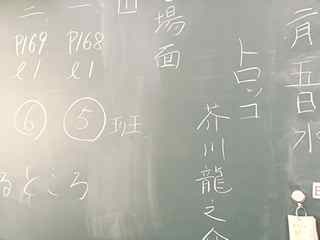 二月五日水
トロッコ
芥川龍之介
場面
一 P168 l1 ⑤班
二 P169 l1 ⑥
るところ